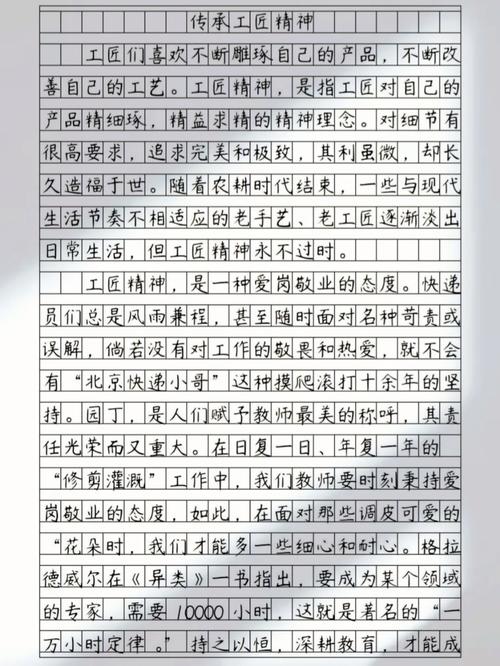 传承工匠精神
工匠们喜欢不断雕琢自己的产品，不断改
善自己的工艺。工匠精神，是指工匠对自己的
产品精细琢，精益求精的精神理念。对细节有
很高要求，追求完美和极致，其利虽微，却长
久造福于世。随着农耕时代结束，一些与现代
生活节奏不相适应的老手艺、老工匠逐渐淡出
日常生活，但工匠精神永不过时。
工匠精神，是一种爱岗敬业的态度。快递
员们总是风雨兼程，甚至随时面对名种苛责或
误解，倘若没有对工作的敬畏和热爱，就不会
有“北京快递小哥”这种摸爬滚打十余年的坚
持。园丁，是人们赋予教师最美的称呼，其责
任光荣而又重大。在日复一日、年复一年的
“修剪灌溉”工作中，我们教师要时刻秉持爱
岗敬业的态度，如此，在面对那些调皮可爱的
“花朵时，我们才能多一些细心和耐心。格拉
德威尔在《异类》一书指出，要成为某个领域
的专家，需要10000小时，这就是著名的“一
万小时定律。”持之以恒，深耕教育，才能成